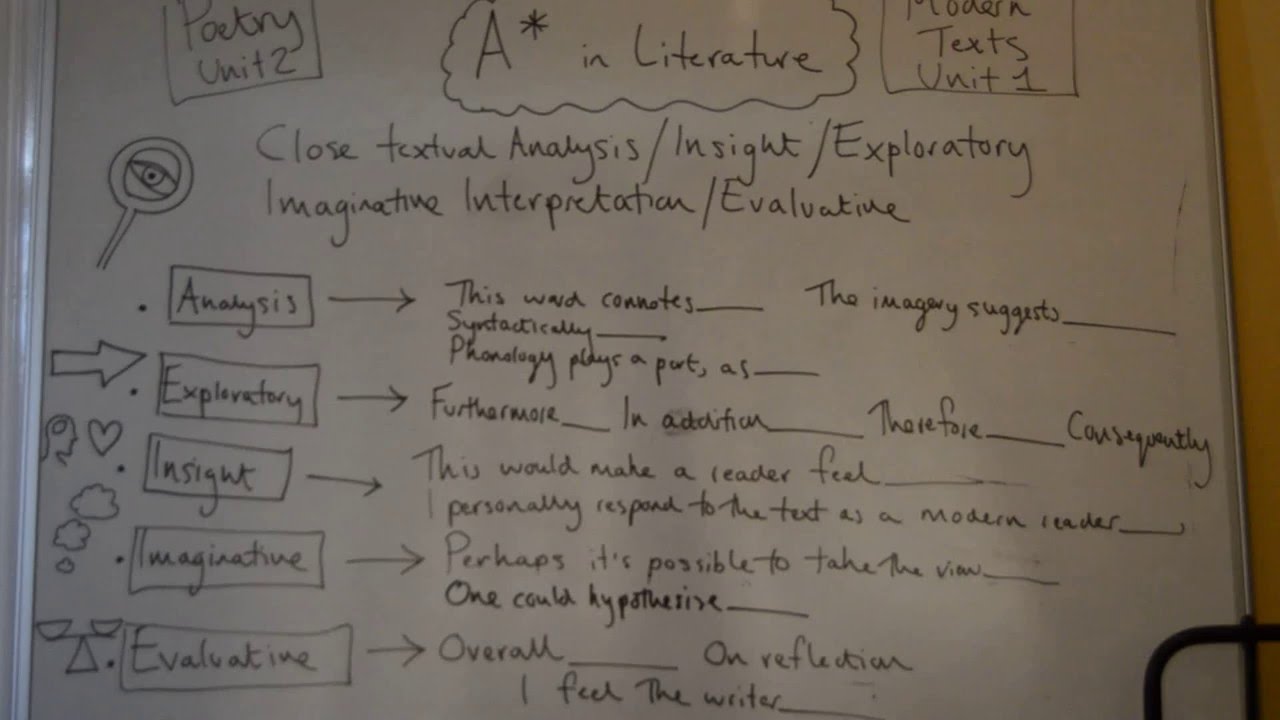 Poetry
Unit 2
A* in Literature
Modern
Texts
Unit 1
Close textual Analysis/Insight/Exploratory
Imaginative Interpretation/Evaluative
Analysis
This word connotes____ The imagery suggests____
Syntactically____
Phonology plays a part, as____
Exploratory
Furthermore____ In addition____ Therefore____ Consequently
Insight
This would make a reader feel____
I personally respond to the text as a modern reader____,
Imaginative
Perhaps it's possible to take the view____
One could hypothesise____
Evaluative
Overall____ On reflection
I feel The writer____